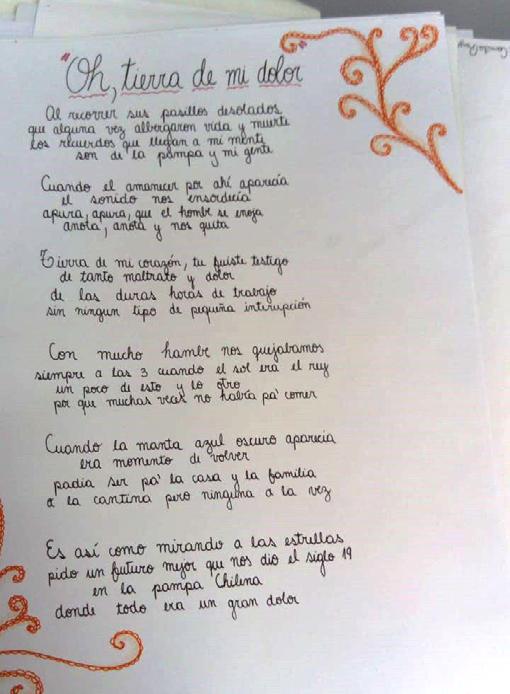 "Oh, tierra de mi dolor
Al recorrer sus pasillos desolados
que alguna vez albergaron vida y muerte
los recuerdos que llegan a mi mente
son de la pampa y mi gente
Cuando el amanecer por ahí aparicía
el sonido nos ensordecía
apura, apura, que el hombre se enoja
anota, anota y nos quita
Tierra de mi corazón, tu fuiste testigo
de tanto maltrato y dolor
de las duras horas de trabajo
sin ningun tipo de pequeña interupción
Con mucho hambre nos quejabamos
siempre a las 3 cuando el sol era el rey
un poco de esto y lo otro
por que muchas veces no habría pa' comer
Cuando la manta azul oscuro aparicia
era momento de volver
podia ser pa' la casa y la familia
o la cantina pero ninguna a la vez
Es así como mirando a las estrellas
pido un futuro mejor que nos dio el siglo 19
en la pampa Chilena
donde todo era un gran dolor